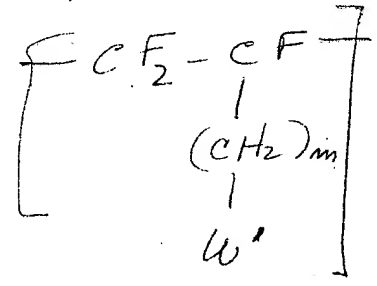 [CF₂-CF]
|
(CH₂)m
|
W'